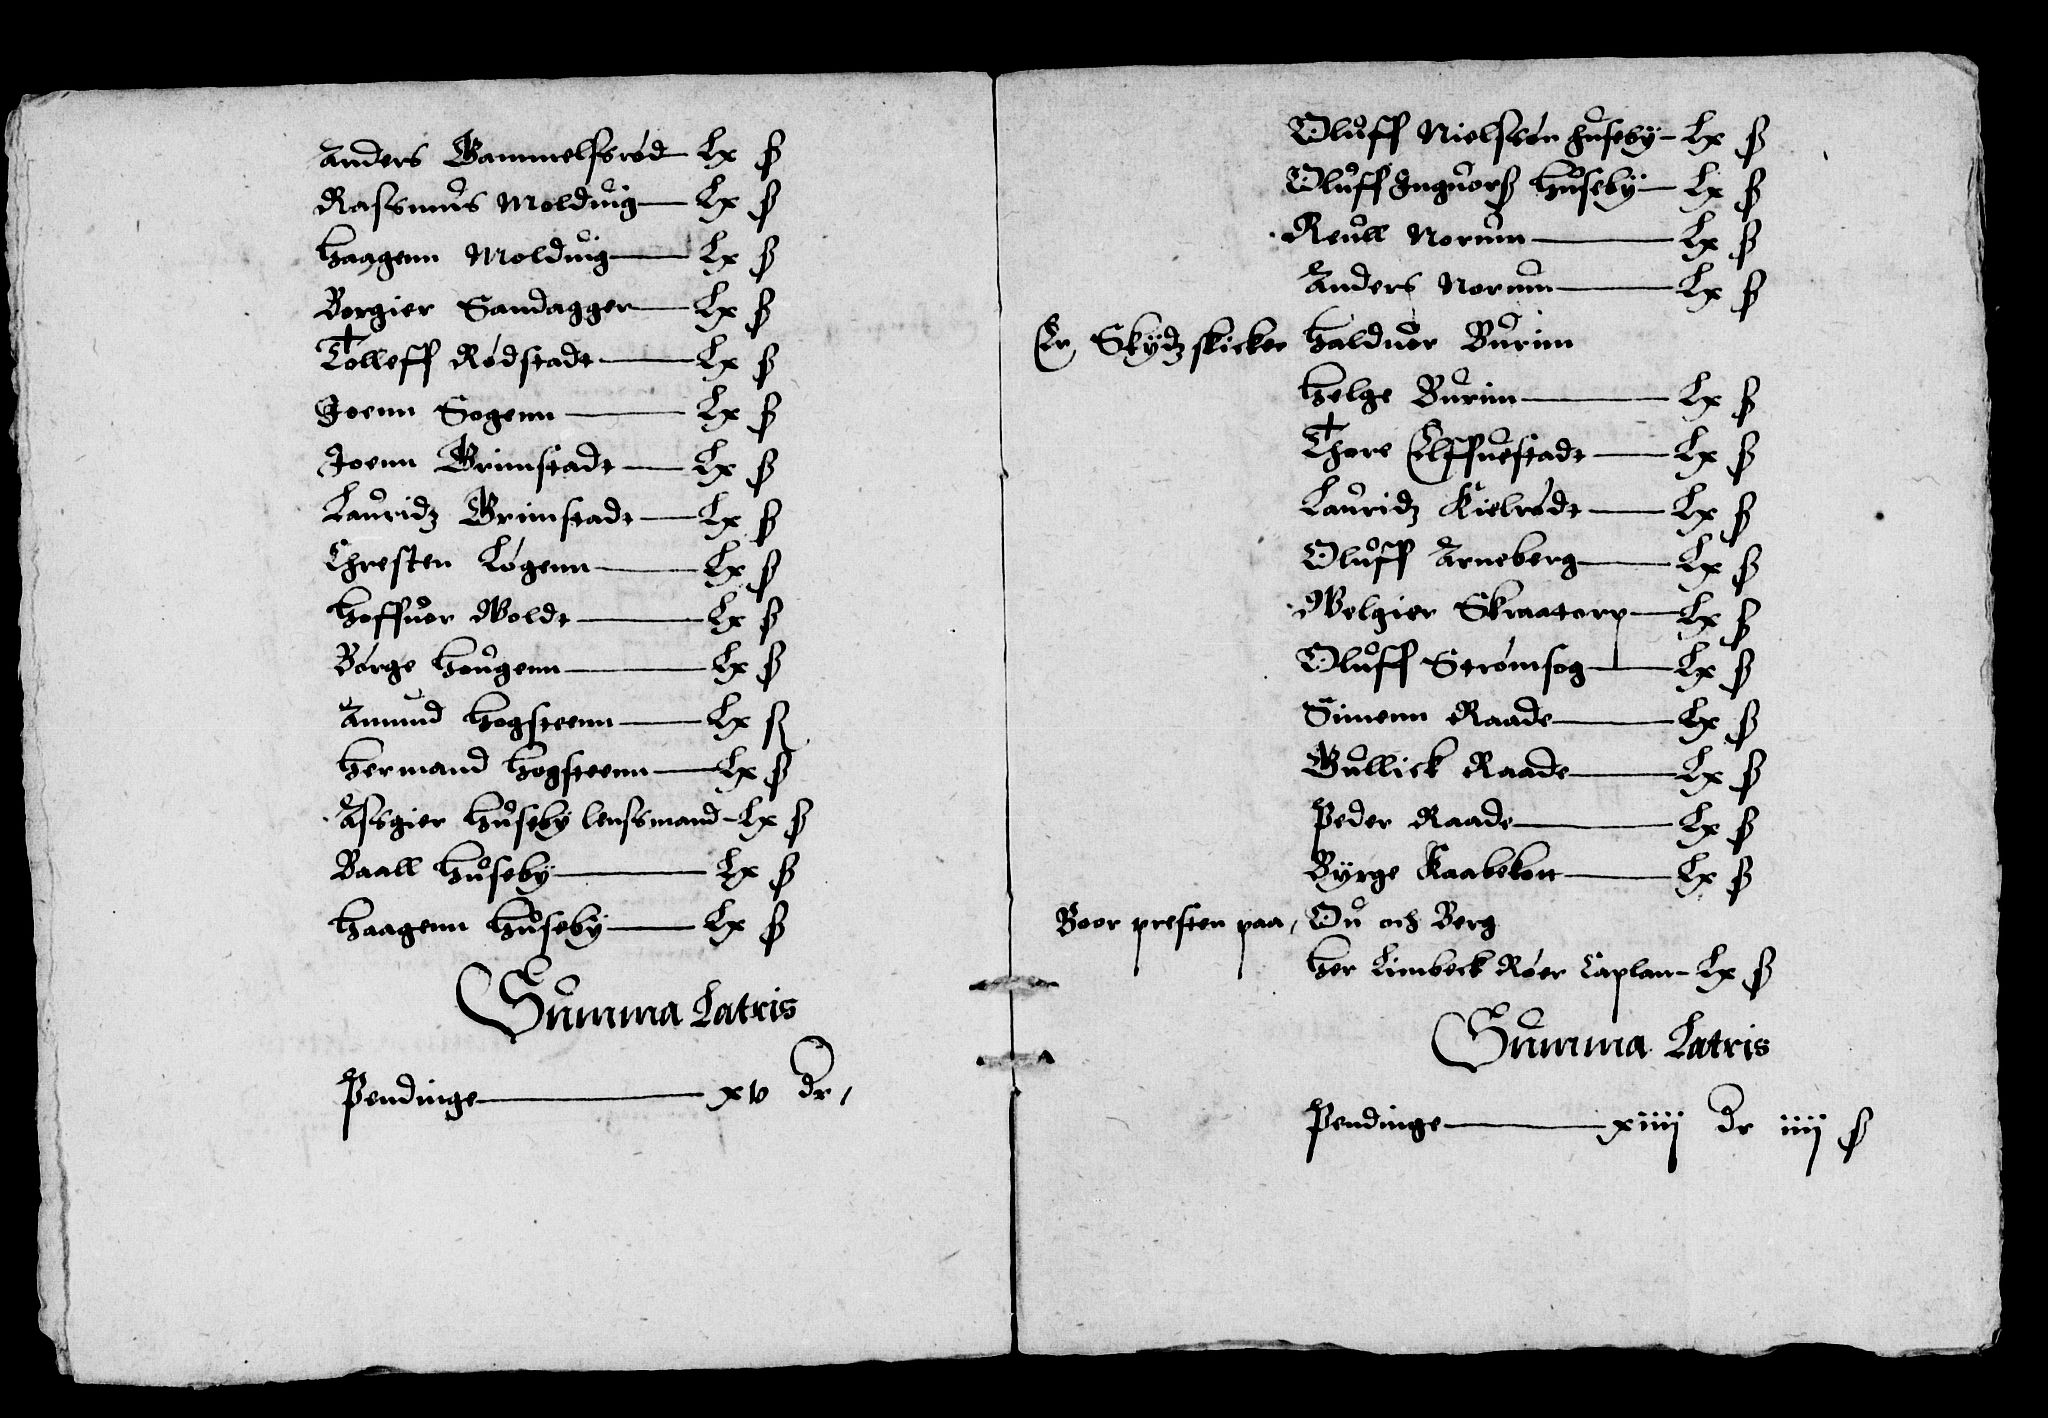 Anders Gammelssrød Lx ß
Rassmus Molduig Lx ß
Haagenn Molduig Lx ß
Borgier Sandagger Lx ß
Tolleff Rødstadt Lx ß
Joenn Sogenn Lx ß
Joenn Grimstadt Lx ß
Lauridz Grimstadt Lx ß
Chresten Løgenn Lx ß
Hoffuor Woldt Lx ß
Børge Hougenn Lx ß
Amund Hogsteenn Lx ß
Hermand Hogsteenn Lx ß
Assgier Huseby lenssmand Lx ß
Baall Huseby Lx ß
Haagenn Huseby Lx ß
Summa Latris
Pendinge xv dr
Oluff Nielssøn Huseby Lx ß
Oluff Inguorß Huseby Lx ß
Reull Norum Lx ß
Anders Norum Lx ß
Er Skydz skicker Halduor Burim
Helge Burim Lx ß
Thore Elffuestadt Lx ß
Lauridz Kielrødt Lx ß
Oluff Arneberg Lx ß
Welgier Skraatorp Lx ß
Oluff Strømsog Lx ß
Simenn Raade Lx ß
Gullick Raade Lx ß
Peder Raade Lx ß
Byrge Kaabekon Lx ß
Boor presten paa, Ou och Berg
Her Limbeck Røer Caplan Lx ß
Summa Latris
Pendinge xiiij dr iiij ß